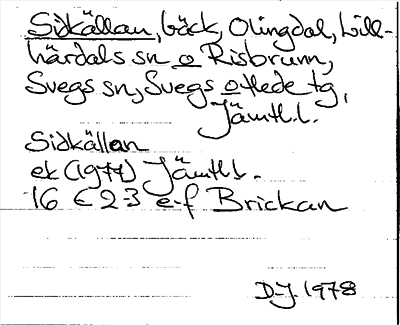 Sidkällan, bäck, Olingdal, Lill-
härdals sn o Risbrunn,
Svegs sn, Svegs o Hede tg,
Jämtl.l.
Sidkällan
ek (1977) Jämtl.l.
16 E 2-3 e-f Brickan
D-J. 1978